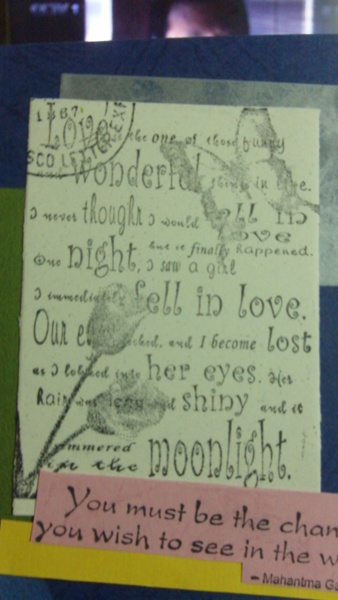 1887
EXP
SCO
Love is the one of those funny
Wonderful things in life.
I never thought I would fall in
love
but it finally happened.
One night, I saw a girl
I immediately fell in love.
Our locked, and I become lost
as I looked into her eyes. Her
Hair was long and shiny and it
in the moonlight.
You must be the chan
you wish to see in the w
– Mahantma Ga